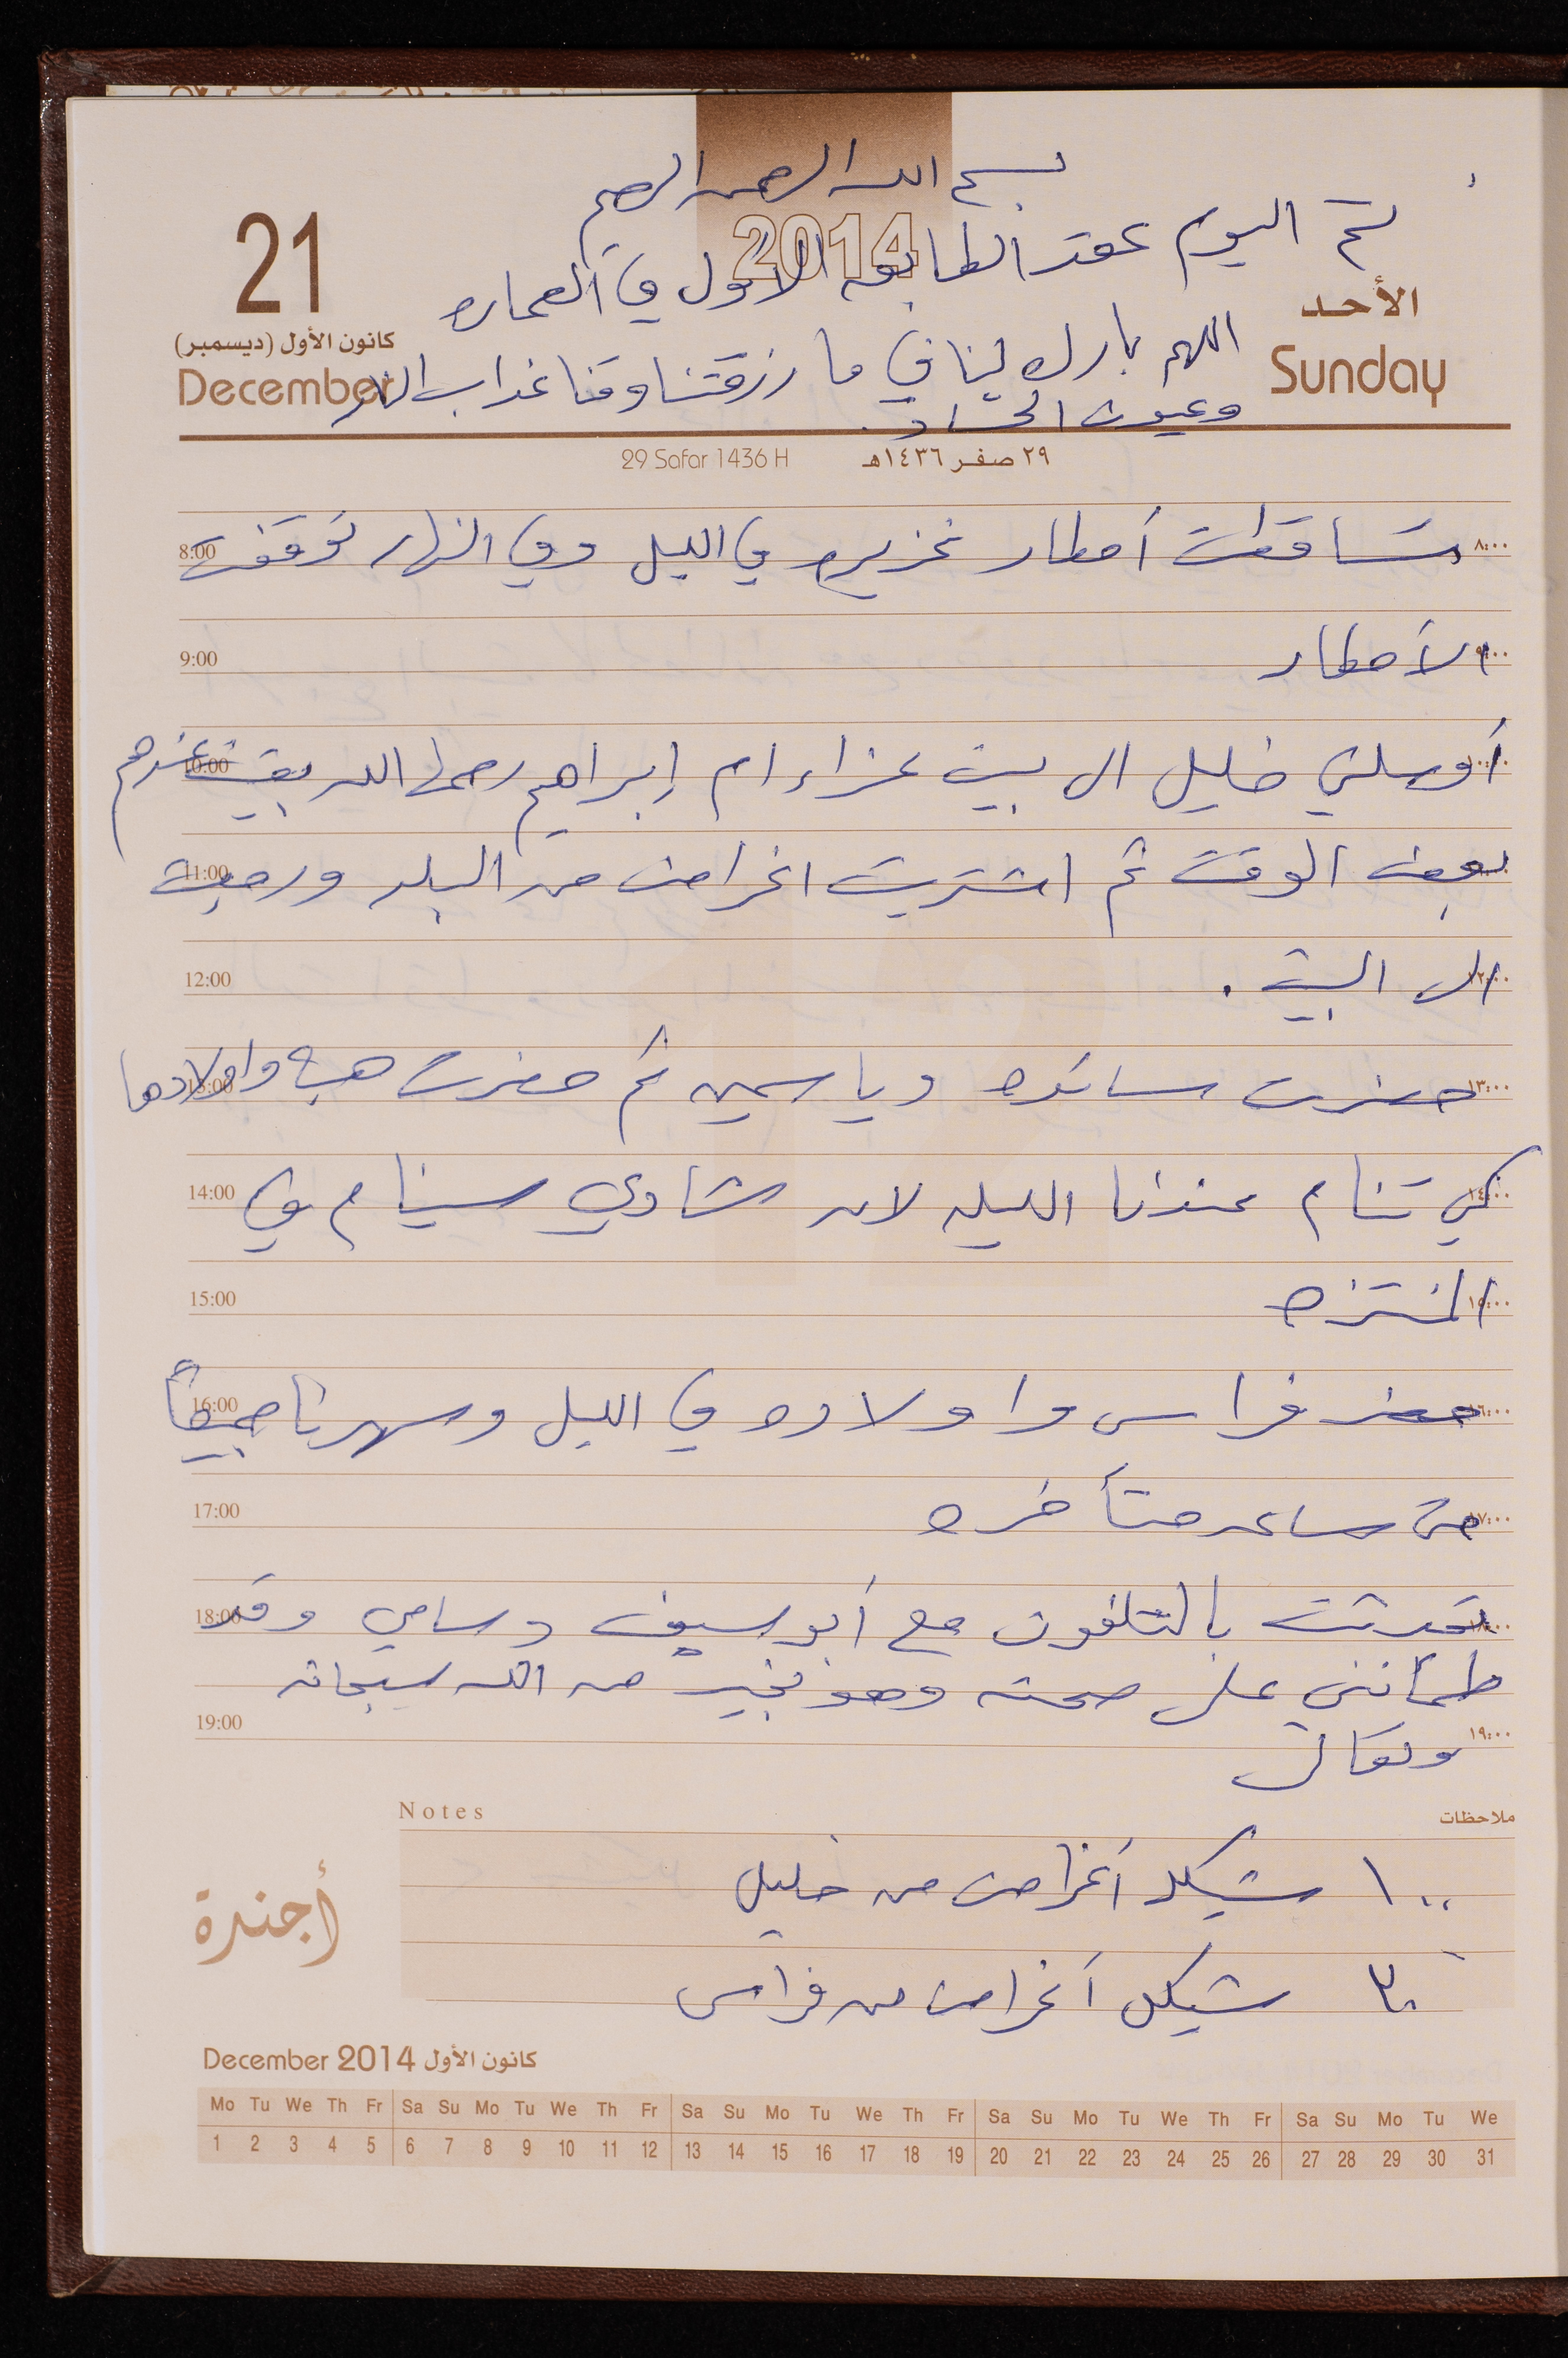 بسم الله الرحمن الرحيم
2014
تم اليوم عقد الطابق الأول في العماره
21
كانون الأول (ديسمبر)
December
الأحد
Sunday
اللهم بارك لنا في ما رزقتنا وقنا عذاب النار
وعيون الحساد.
29 Safar 1436 H ٢٩ صفر ١٤٣٦هـ
8:00 تساقطت أمطار غزيره في الليل وفي النهار توقفت ٨:٠٠
9:00 الأمطار ٩:٠٠
10:00 أوصلني خليل الى بيت عزاء ام إبراهيم رحمها الله بقيت عندهم ١٠:٠٠
11:00 بعض الوقت ثم اشتريت اغراض من البلد ورجعت
12:00 الى البيت . ١٢:٠٠
13:00 حضرت سائده وياسمين ثم حضرت هبه واولادها ١٣:٠٠
14:00 كي تنام عندنا الليله لان شادي سينام في ١٤:٠٠
15:00 المنتزه ١٥:٠٠
16:00 حضر فراس واولاده في الليل وسهرنا جميعاً ١٦:٠٠
17:00 حتى ساعه متأخره ١٧:٠٠
18:00 تحدثت بالتلفون مع أبو سيف وسامي وقد ١٨:٠٠
طمأنني على صحته وهو بخير من الله سبحانه
19:00 وتعالى ١٩:٠٠
Notes ملاحظات
١٠٠ شيكل أغراض من خليل
أجندة
٢٠٠ شيكل أغراض من فراس
December 2014 كانون الأول
Mo Tu We Th Fr Sa Su Mo Tu We Th Fr Sa Su Mo Tu We Th Fr Sa Su Mo Tu We Th Fr Sa Su Mo Tu We
1 2 3 4 5 6 7 8 9 10 11 12 13 14 15 16 17 18 19 20 21 22 23 24 25 26 27 28 29 30 31